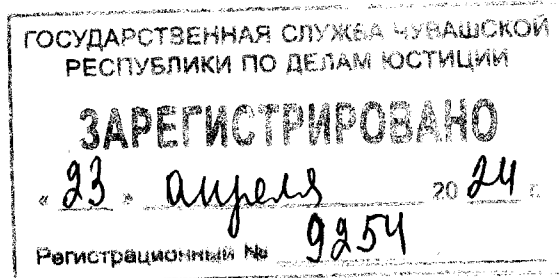 ГОСУДАРСТВЕННАЯ СЛУЖБА ЧУВАШСКОЙ
РЕСПУБЛИКИ ПО ДЕЛАМ ЮСТИЦИИ
ЗАРЕГИСТРИРОВАНО
« 23 » апреля 20 24 г.
Регистрационный № 9254